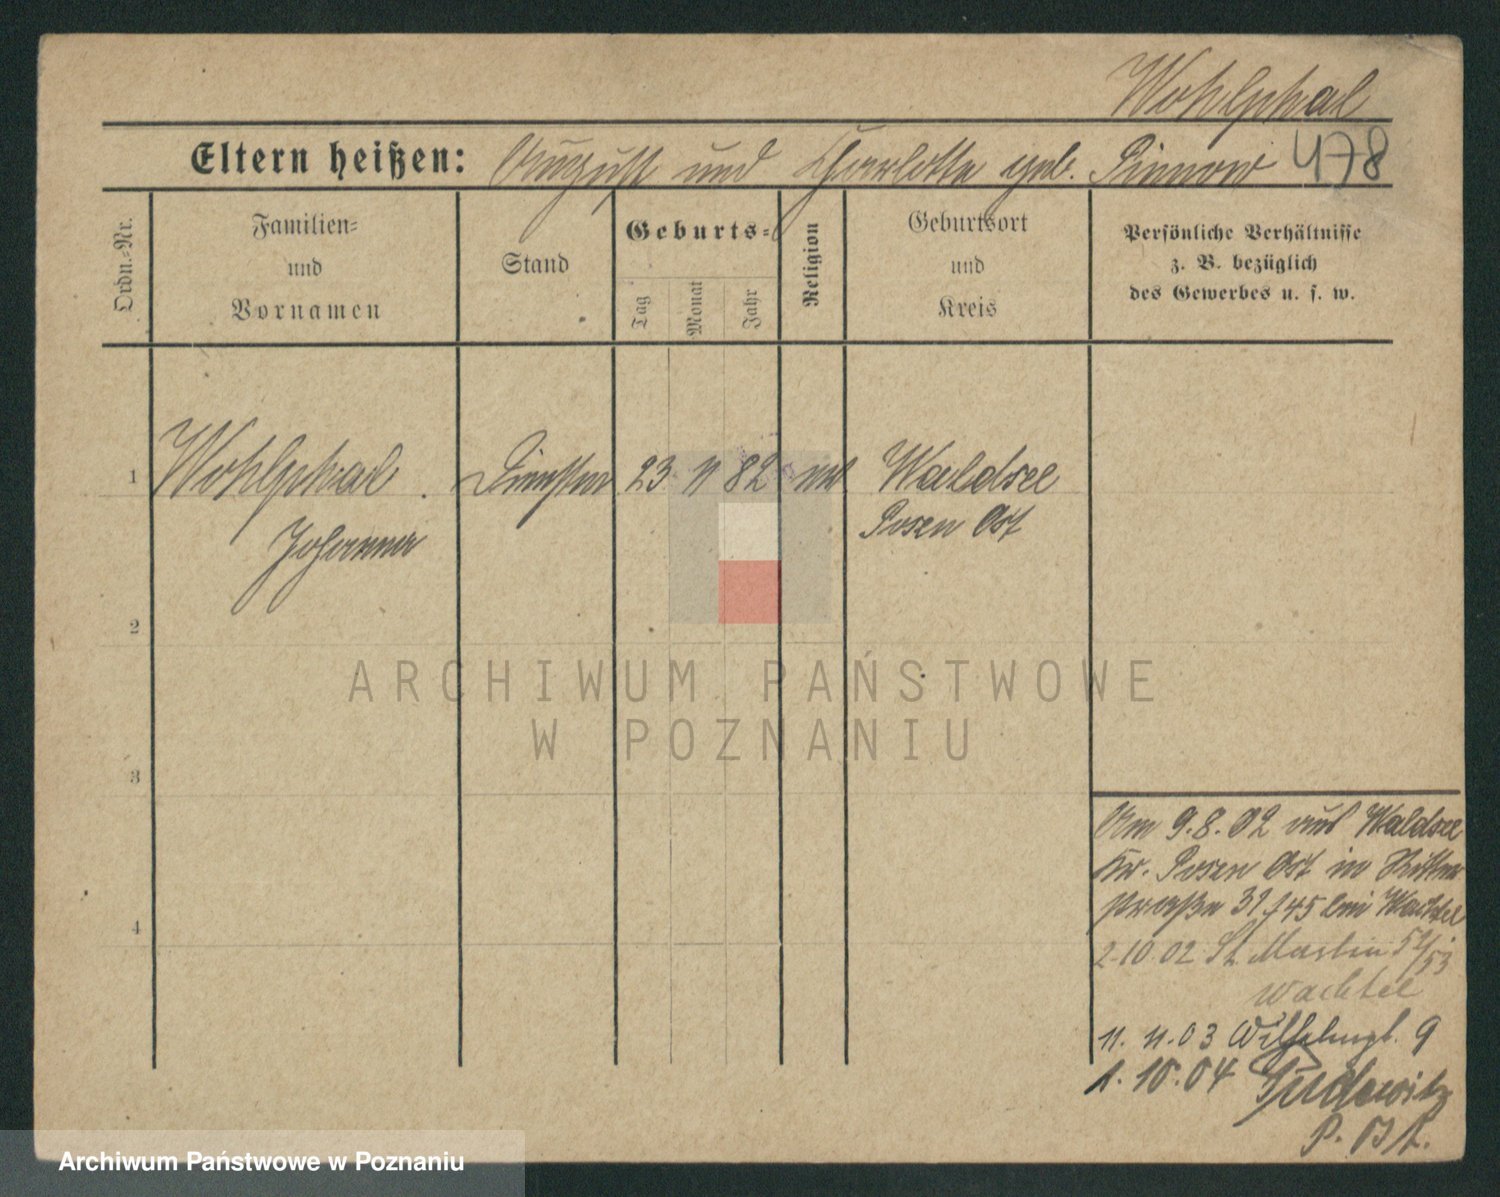 Wohlphal
Eltern heißen: August und Charlotte geb. Pinnow 478
Ordn.-Nr.
Familien=
und
Vornamen
Stand
Geburts=
Tag
Monat
Jahr
Religion
Geburtsort
und
Kreis
Persönliche Verhältnisse
z. B. bezüglich
des Gewerbes u. s. w.
1 Wohlphal 23 11 82 Waldsee
Johanna Posen Ost
2
3
4
Am 9.8.02 aus Waldsee
Kr. Posen Ost in Ritter
straße 31/45 bei Wachtel
2.10.02 St. Martin 52/53
Wachtel
11.11.03 Wilhelmpl. 9
1.10.04
P. Ost.
ARCHIWUM PAŃSTWOWE
W POZNANIU
Archiwum Państwowe w Poznaniu